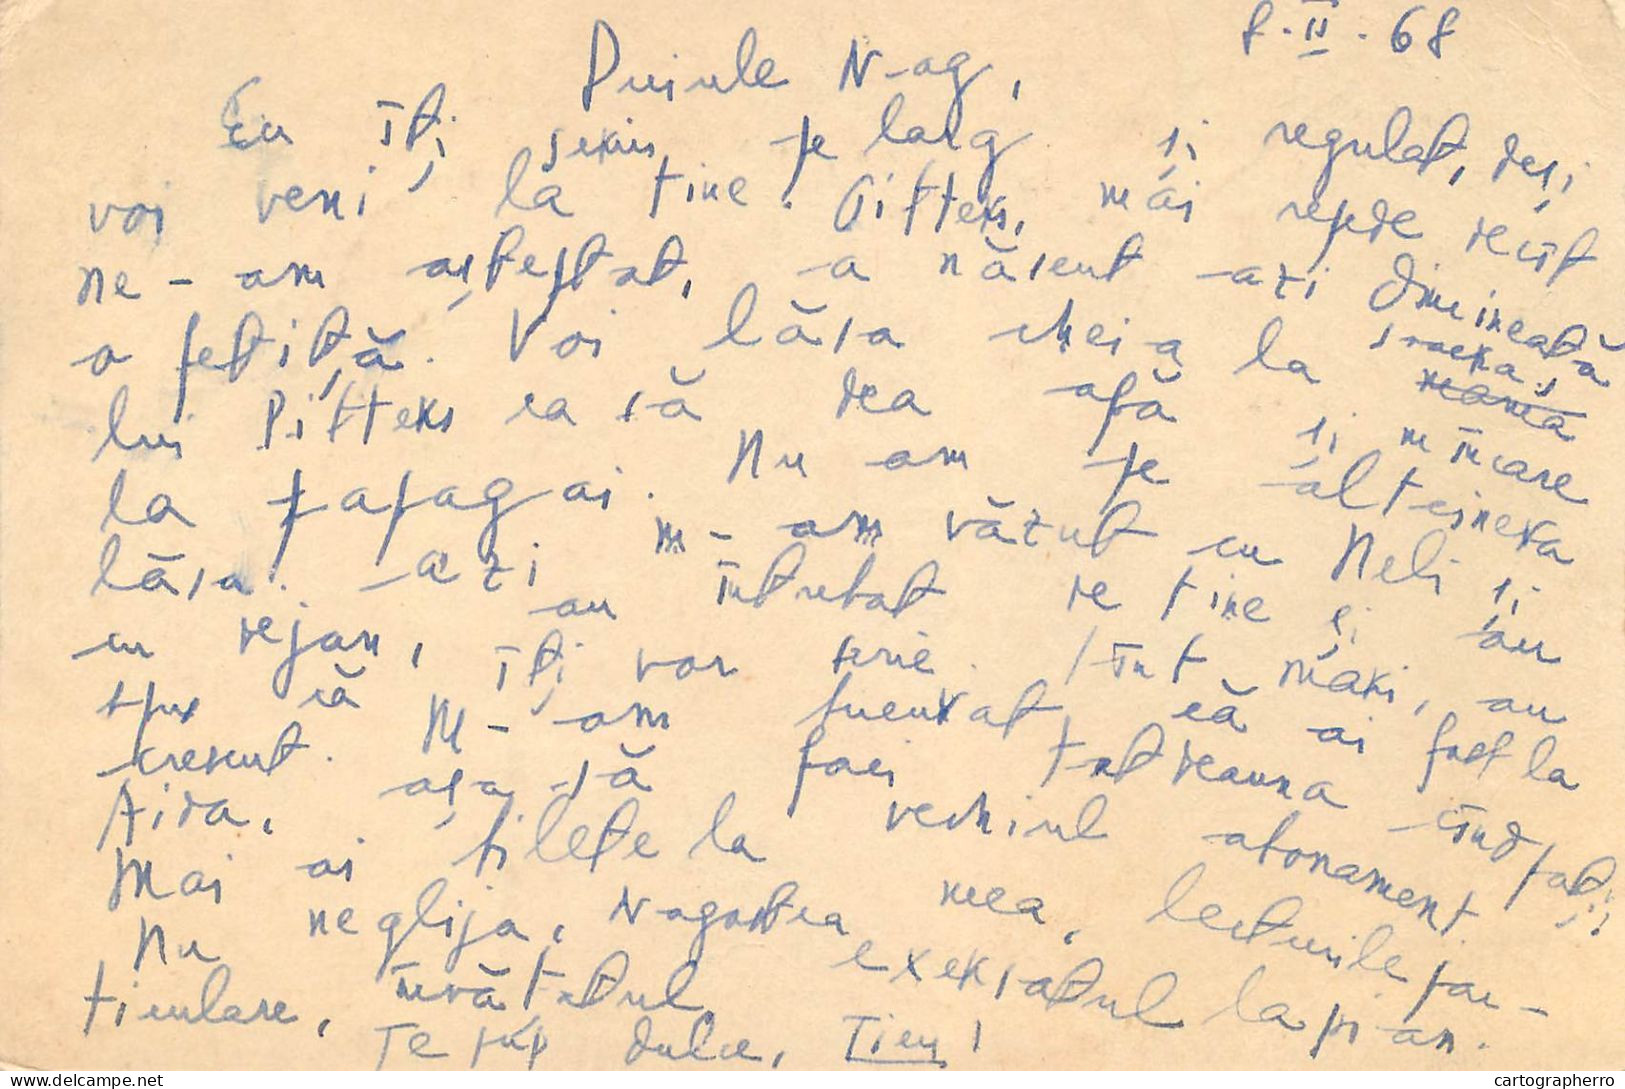 8.II.68
Puiule Nag,
Eu îți scriu pe larg și regulat, deși
voi veni la tine. Pitteks, mai repede decît
ne-am așteptat, a născut azi dimineață
o fetiță. Voi lăsa cheia la soacra
lui Pitteks ca să dea apă și mîncare
la papagai. Nu am pe altcineva
lăsa. Azi m-am văzut cu Neli și
cu Dejan, au întrebat de tine și au
spus că îți vor scrie. Sînt mari, au
crescut. M-am bucurat că ai fost la
Aida, așa să faci totdeauna cînd poți;
Mai ai bilete la vechiul abonament
Nu neglija, Nagostea mea, lecturile par-
ticulare, învățatul, exersatul la pian.
Te pup dulce, Ticu!
delcampe.net
cartographerro